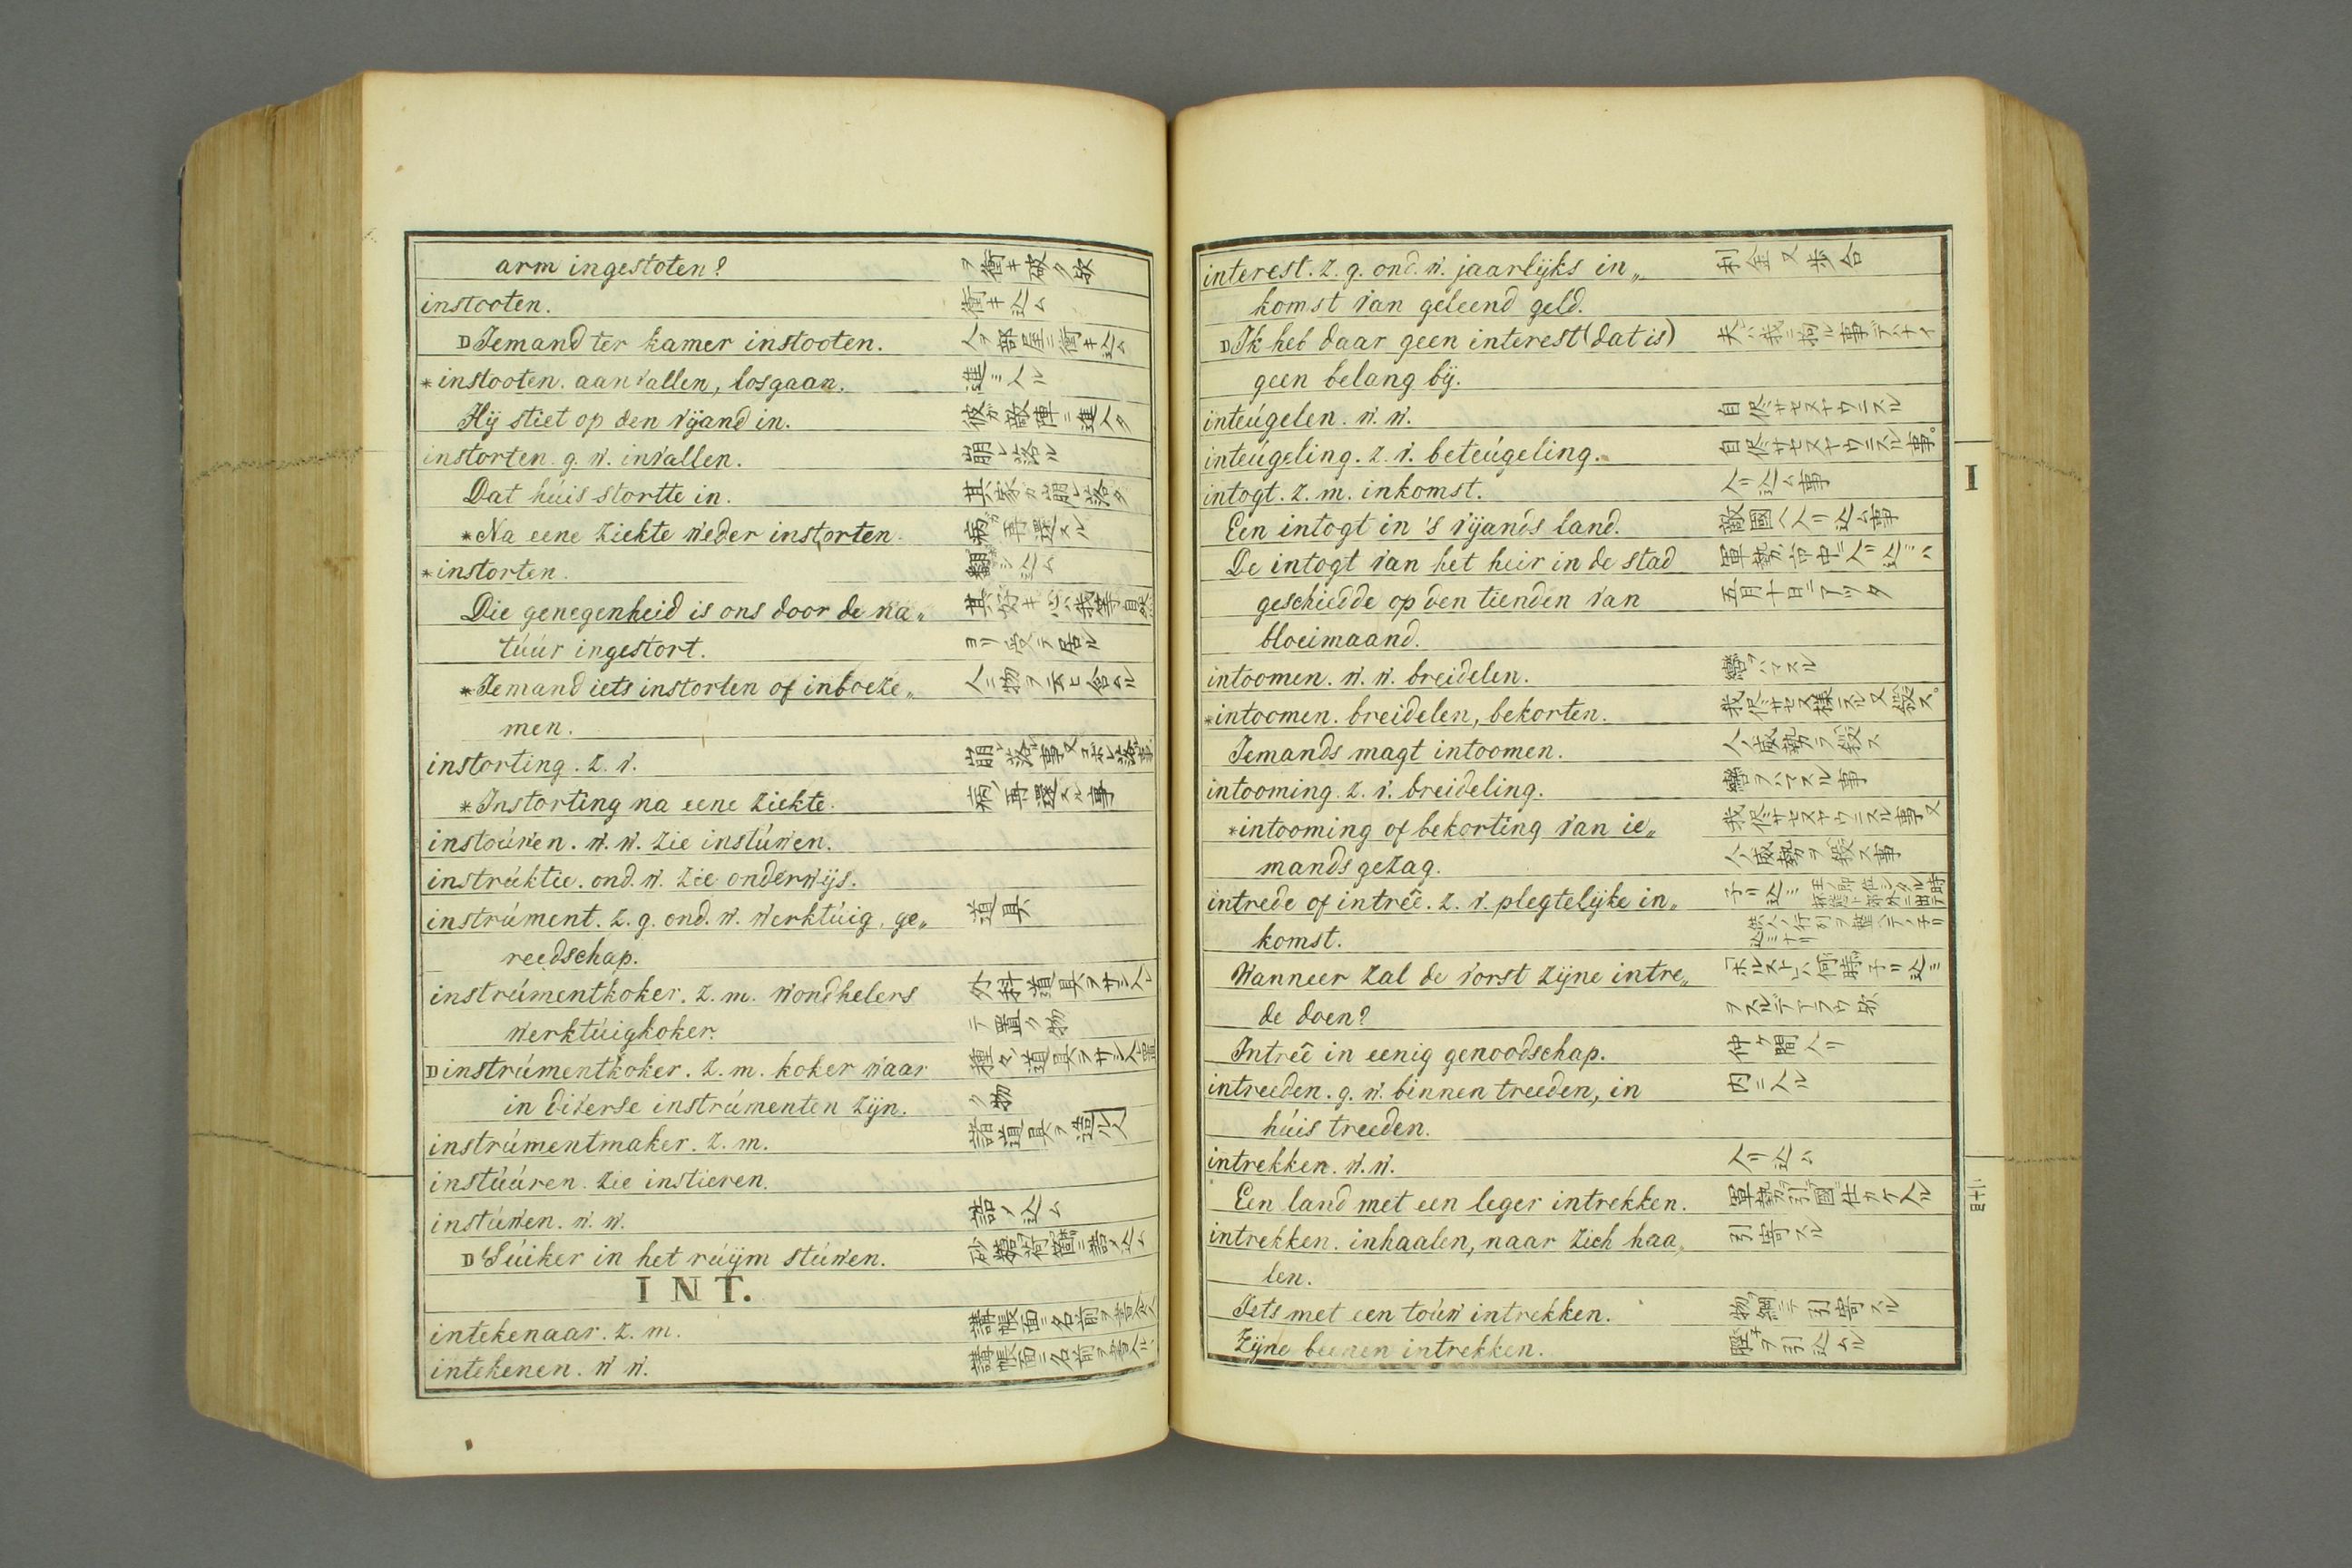 arm ingestoten? ヲ衝キ破タ歟
instooten. 衝キ込ム
D Iemand ter kamer instooten. 人ヲ部屋ニ衝キ込ム
*instooten. aanvallen, losgaan. 進ミ入ル
Hij stiet op den vijand in. 彼ガ敵陣ニ進入タ
instorten. g. w. invallen. 崩レ落ル
Dat húis stortte in. 其家ガ崩レ落タ
*Na eene ziekte weder instorten. 病ガ再還スル
*instorten. 込ム
Die genegenheid is ons door de na„ 其好キ心ハ我等自然
túúr ingestort. ヨリ受テ居ル
*Iemand iets instorten of inboeze„ 人ニ物ヲ云ヒ含ル
men.
instorting. z. v. 崩レ落ル事又
*Instorting na eene ziekte. 病ノ再還スル事
instoúwen. w. w. zie instúwen.
instrúktie. ond. w. zie onderwijs.
instrúment. z. g. ond. w. werktúig, ge„ 道具
reedschap.
instrúmentkoker. z. m. wondhelers 外科道具ヲサシ入レ
werktúigkoker. テ置ク物
D instrúmentkoker. z. m. koker waar 種々道具ヲサシ入置
in diverse instrúmenten zijn. ク物
instrúmentmaker. z. m. 諸道具ヲ造ル人
instúúren. zie instieren.
instúwen. w. w. 詰メ込ム
D Súiker in het rúijm stúwen. 砂糖ヲ荷
INT.
intekenaar. z. m. 講帳面ニ名前ヲ書ク人
intekenen. w w. 講帳面ニ名前ヲ書入ル
interest. z. g. ond. w. jaarlijks in„ 利金又歩合
komst van geleend geld.
D Ik heb daar geen interest (dat is) 夫ハ我ニ拘ル事デナイ
geen belang bij.
inteúgelen. w. w. 自侭サセヌヤウニスル
inteúgeling. z. v. beteúgeling. 自侭サセヌヤウニスル事。
intogt. z. m. inkomst. 入リ込ム事
Een intogt in 's vijands land. 敵國ヘ入リ込ム事
De intogt van het heir in de stad 軍勢ガ市中ニ入リ込ミハ
geschiedde op den tienden van 五月十日ニアツタ
bloeimaand.
intoomen. w. w. breidelen. 轡ヲハマスル
*intoomen. breidelen, bekorten. 我侭サセヌ様ニスル又殺ス。
Iemands magt intoomen. 人ノ威勢ヲ殺ス
intooming. z. v. breideling. 轡ヲハマスル事
*intooming of bekorting van ie„ 我侭サセヌヤウニスル事又
mands gezag. 人ノ威勢ヲ殺ス事
intrede of intreê. z. v. plegtelijke in„
komst.
Wanneer zal de vorst zijne intre„
de doen? ヲスルデアラウ歟
Intreê in eenig genoodschap. 仲ケ間入リ
intreeden. g. w. binnen treeden, in 内ニ入ル
húis treeden.
intrekken. w. w. 入リ込ム
Een land met een leger intrekken.
intrekken. inhaalen, naar zich haa„ 引寄スル
len.
Iets met een toúw intrekken. 物ヲ綱ニテ引寄スル
Zijne beenen intrekken. 引込ムル
I